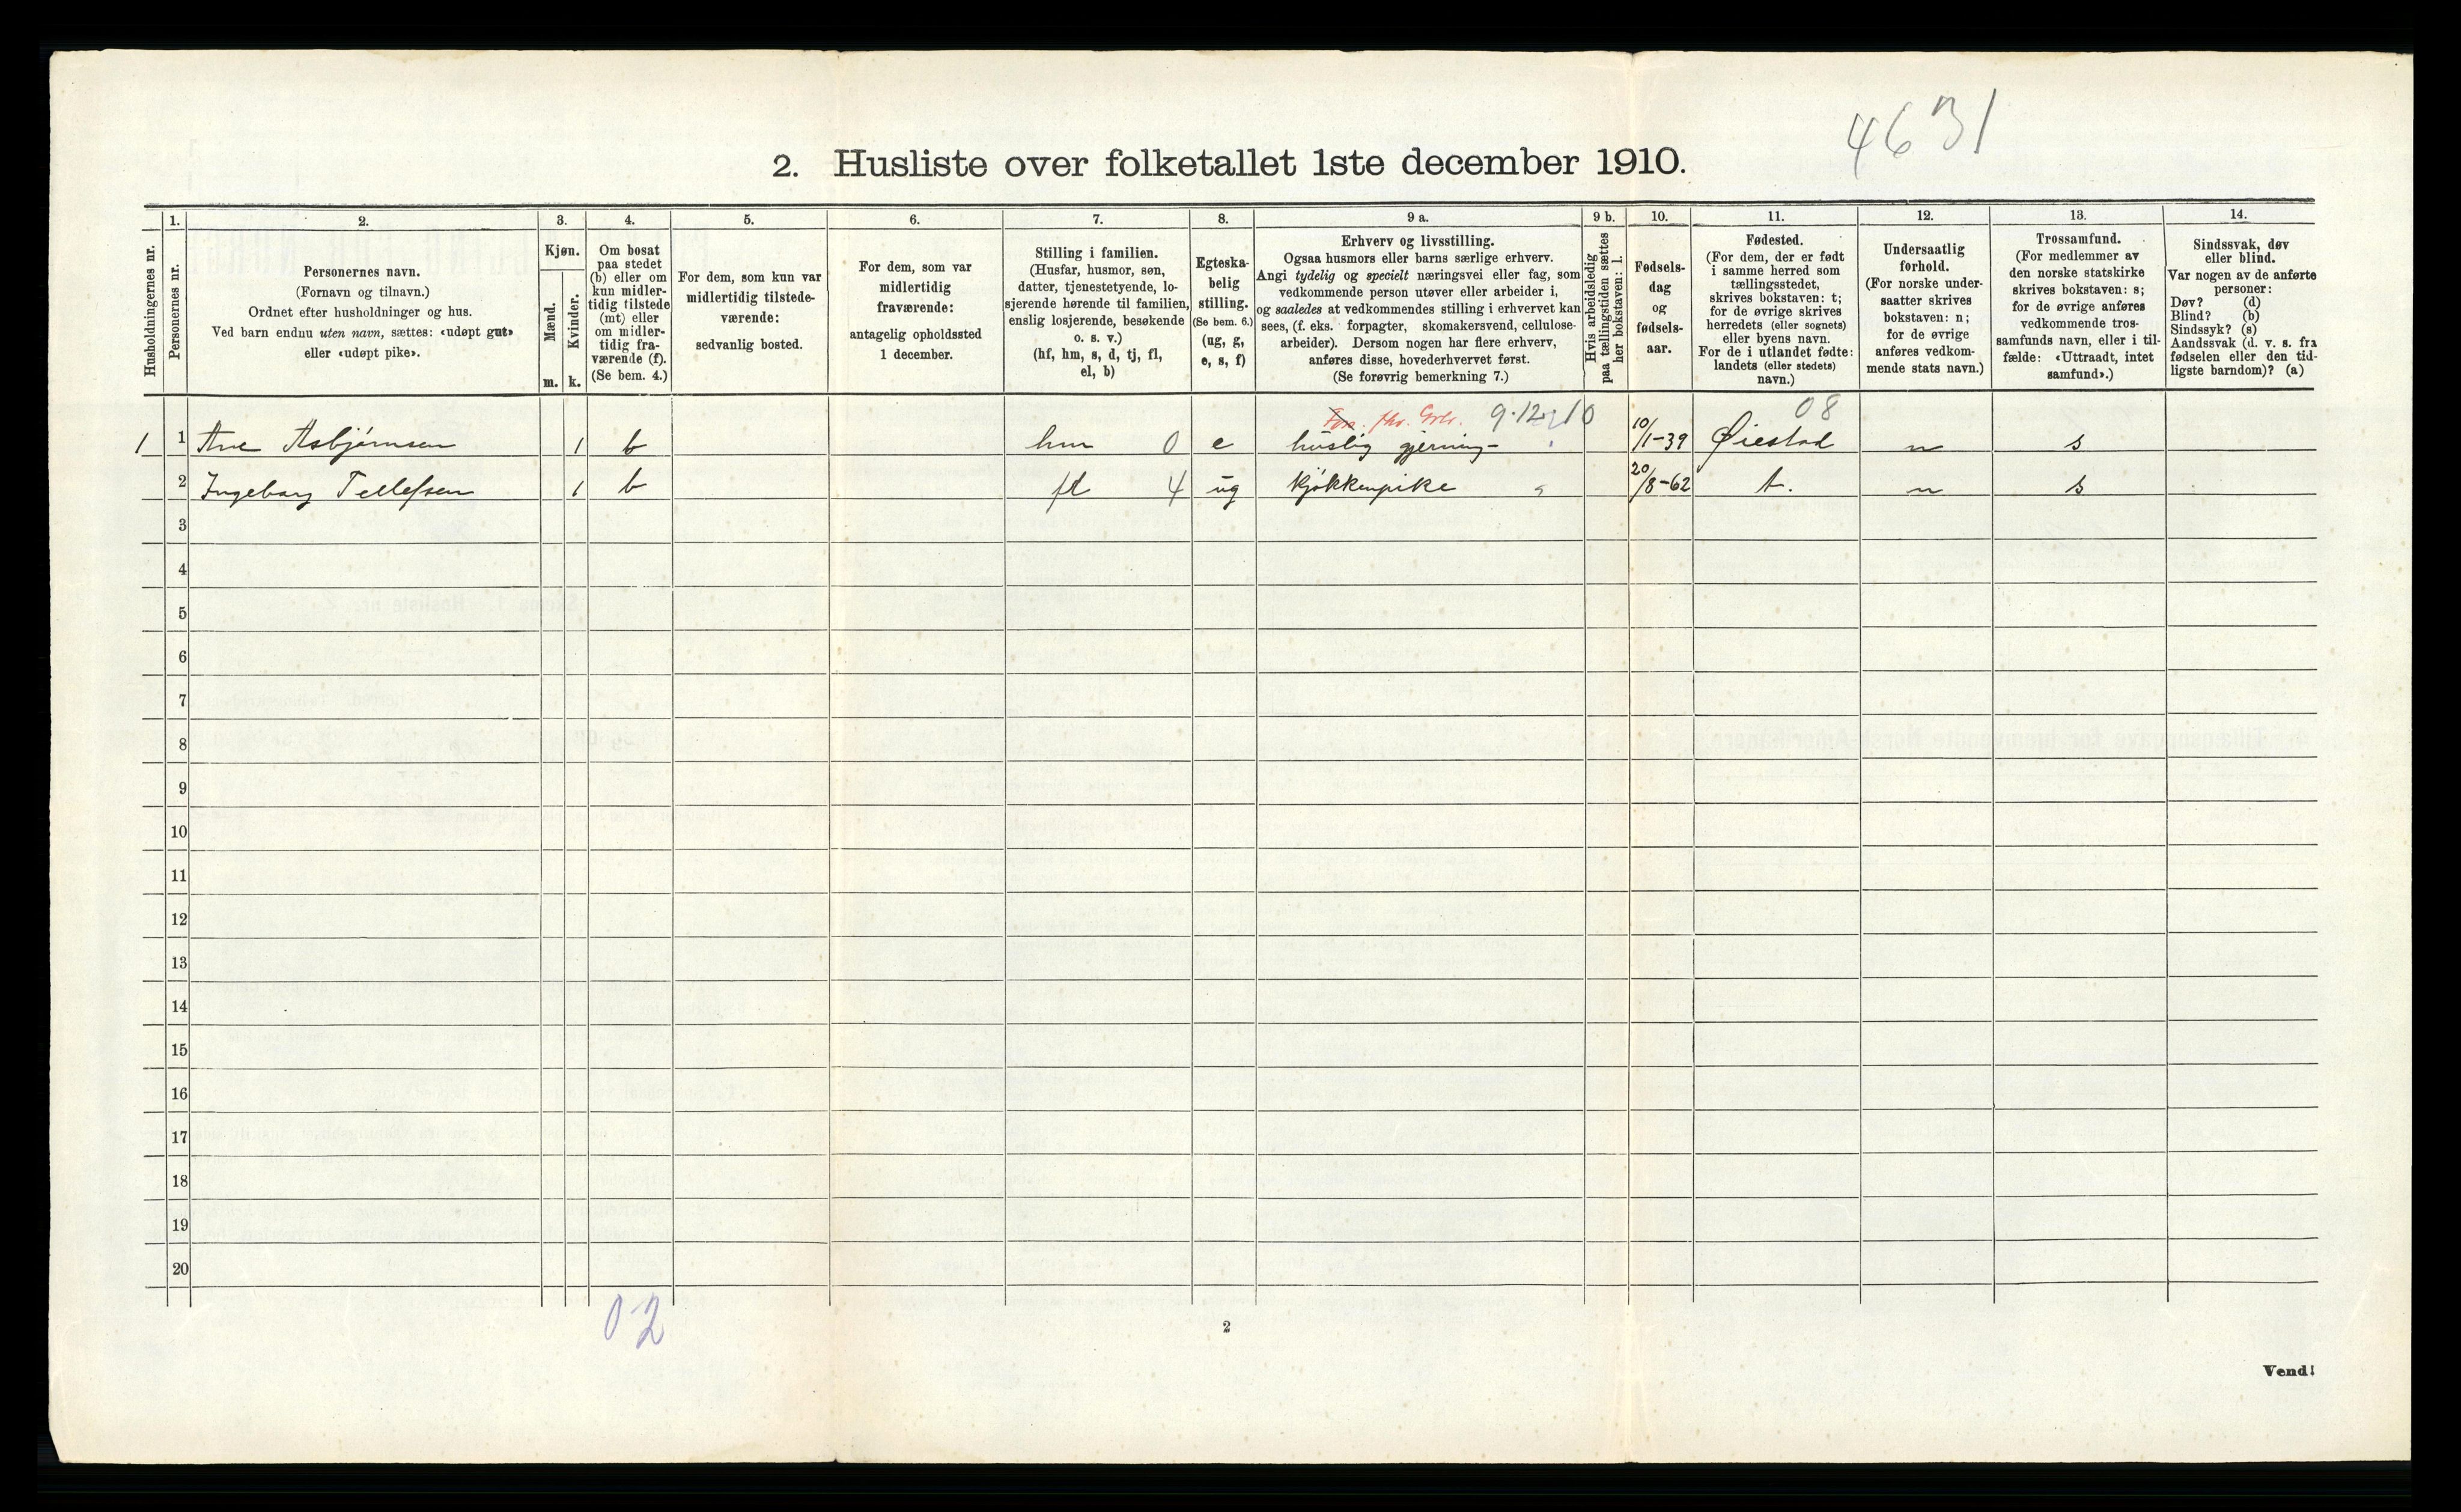 4631
2. Husliste over folketallet 1ste december 1910.
Husholdningernes nr.
1.
Personernes nr.
2.
Personernes navn.
(Fornavn og tilnavn.)
Ordnet efter husholdninger og hus.
Ved barn endnu uten navn, sættes: «udøpt gut»
eller «udøpt pike».
3.
Kjøn.
Mænd.
Kvinder.
m. k.
4.
Om bosat
paa stedet
(b) eller om
kun midler-
tidig tilstede
(mt) eller
om midler-
tidig fra-
værende (f).
(Se bem. 4.)
5.
For dem, som kun var
midlertidig tilstede-
værende:
sedvanlig bosted.
6.
For dem, som var
midlertidig
fraværende:
antagelig opholdssted
1 december.
7.
Stilling i familien.
(Husfar, husmor, søn,
datter, tjenestetyende, lo-
sjerende hørende til familien,
enslig losjerende, besøkende
o. s. v.)
(hf, hm, s, d, tj, fl,
el, b)
8.
Egteska-
belig
stilling.
(Se bem. 6.)
(ug, g,
e, s, f)
9 a.
Erhverv og livsstilling.
Ogsaa husmors eller barns særlige erhverv.
Angi tydelig og specielt næringsvei eller fag, som
vedkommende person utøver eller arbeider i,
og saaledes at vedkommendes stilling i erhvervet kan
sees, (f. eks. forpagter, skomakersvend, cellulose-
arbeider). Dersom nogen har flere erhverv,
anføres disse, hovederhvervet først.
(Se forøvrig bemerkning 7.)
9 b.
Hvis arbeidsledig
paa tællingstiden sættes
her bokstaven: l.
10.
Fødsels-
dag
og
fødsels-
aar.
11.
Fødested.
(For dem, der er født
i samme herred som
tællingsstedet,
skrives bokstaven: t;
for de øvrige skrives
herredets (eller sognets)
eller byens navn.
For de i utlandet fødte:
landets (eller stedets)
navn.)
12.
Undersaatlig
forhold.
(For norske under-
saatter skrives
bokstaven: n;
for de øvrige
anføres vedkom-
mende stats navn.)
13.
Trossamfund.
(For medlemmer av
den norske statskirke
skrives bokstaven: s;
for de øvrige anføres
vedkommende tros-
samfunds navn, eller i til-
fælde: «Uttraadt, intet
samfund».)
14.
Sindssvak, døv
eller blind.
Var nogen av de anførte
personer:
Døv? (d)
Blind? (b)
Sindssyk? (s)
Aandssvak (d. v. s. fra
fødselen eller den tid-
ligste barndom)? (a)
9.12.10 08
1 1 Ane Asbjørnsen 1 b hm 0 e huslig gjerning 10/1-39 Øiestad n s
2 Ingeborg Tellefsen 1 b fl 4 ug kjøkkenpike 20/8-62 t. n s
3
4
5
6
7
8
9
10
11
12
13
14
15
16
17
18
19
20
02
2
Vend!